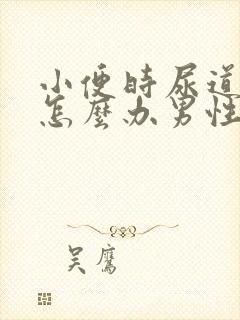 小便時尿道
怎麼办男性
吴鹰